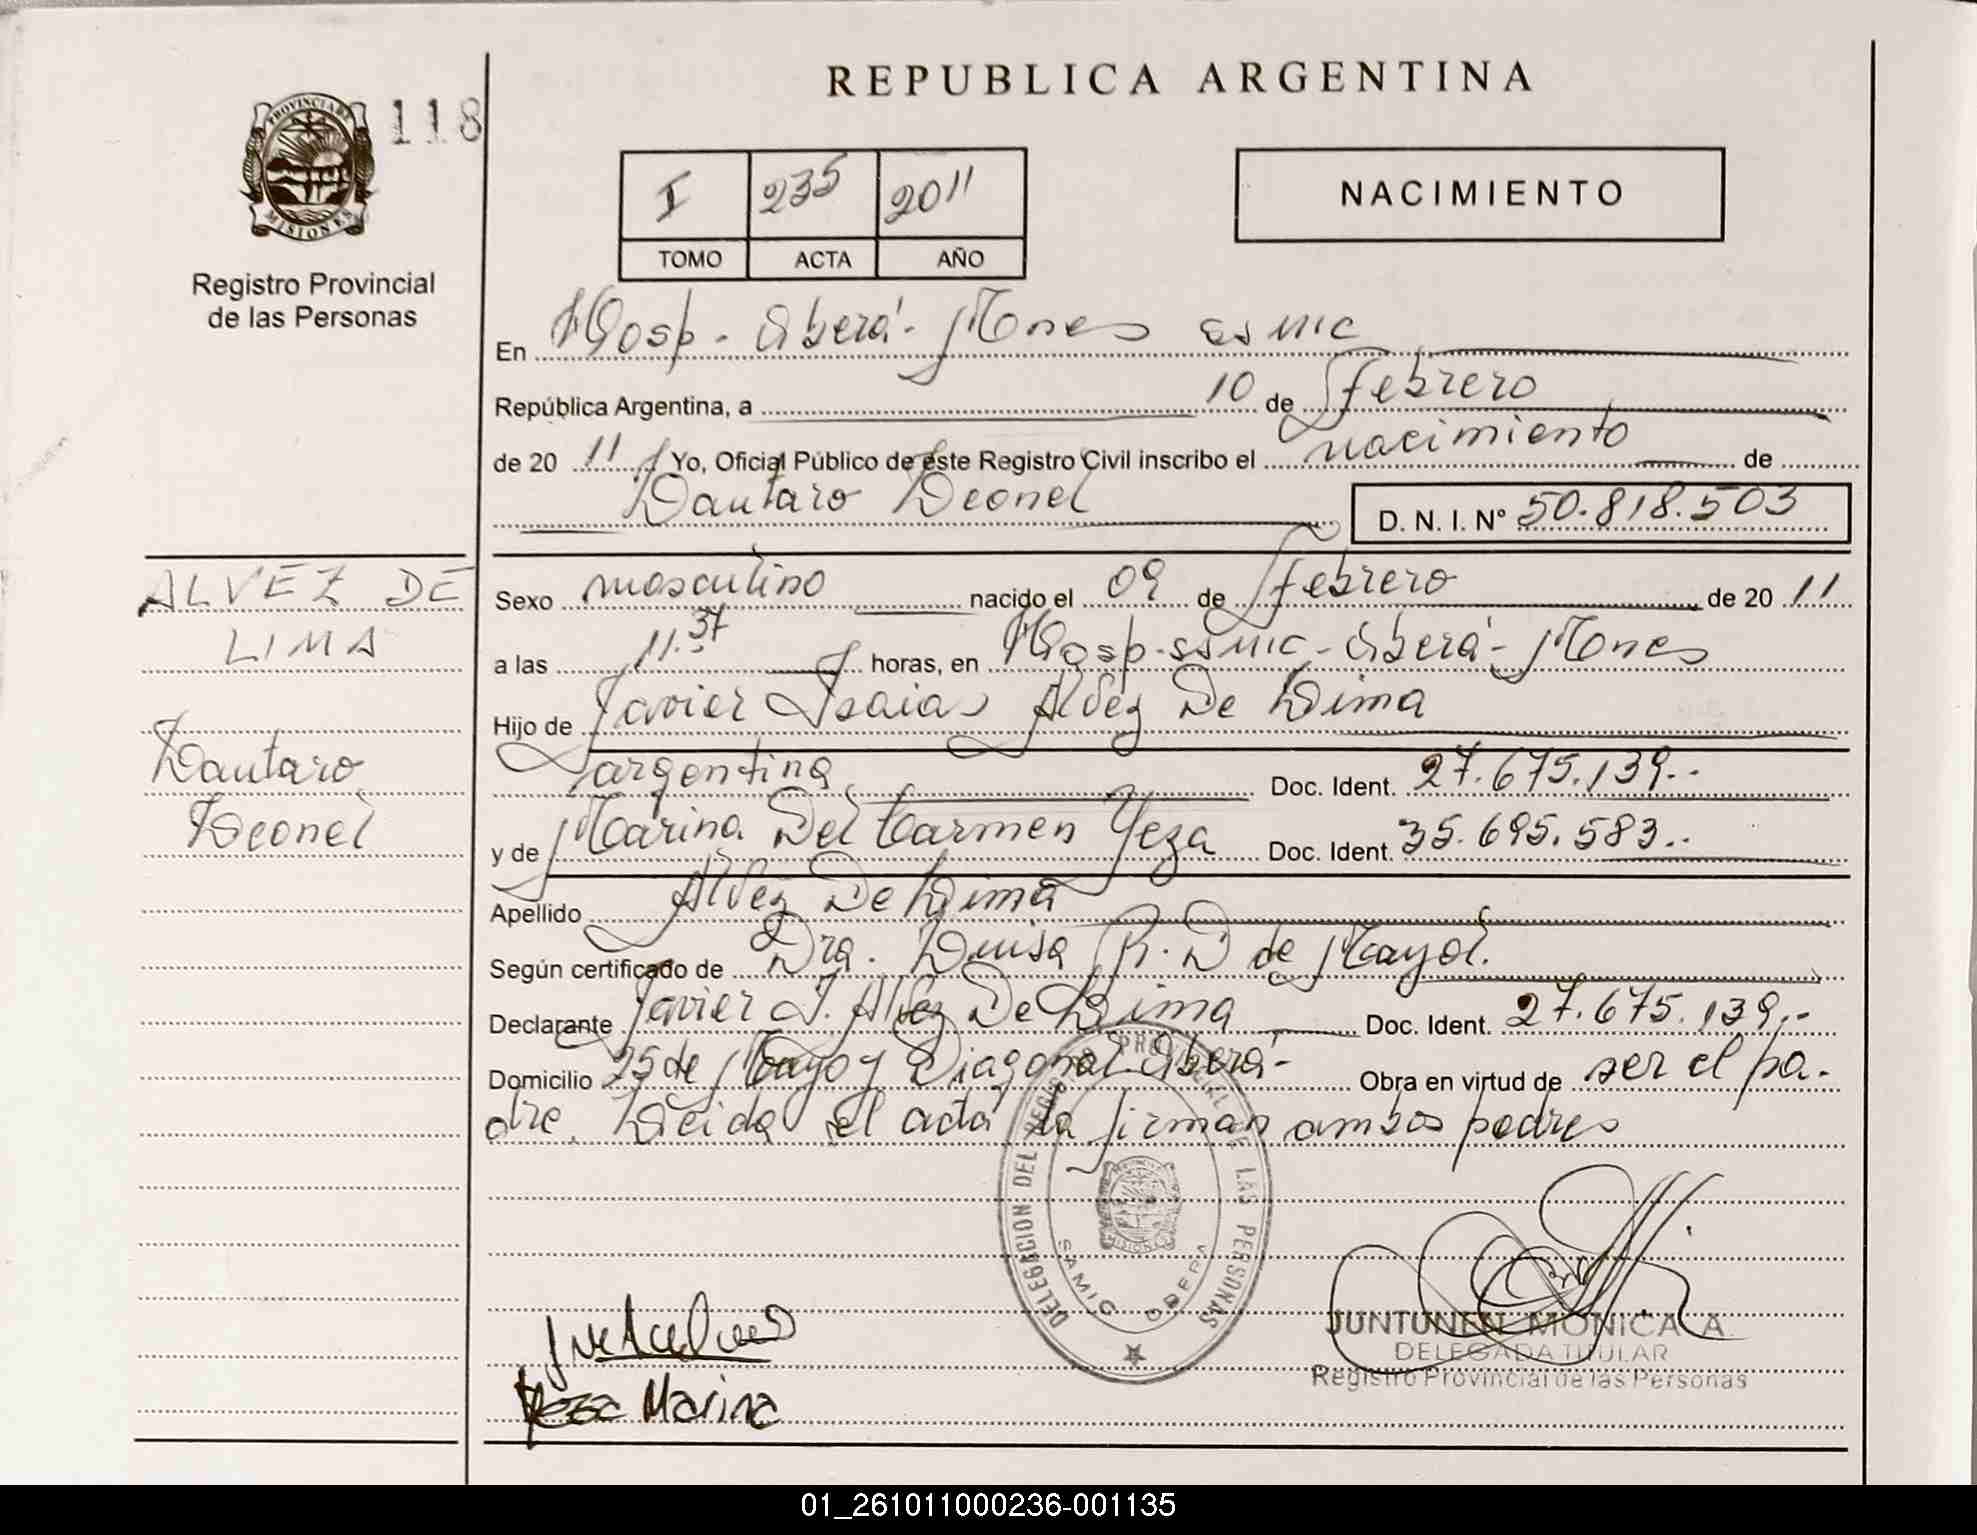 118
REPUBLICA ARGENTINA
PROVINCIA DE MISIONES
Registro Provincial
de las Personas
I 235 2011
TOMO ACTA AÑO
NACIMIENTO
En Hosp - Oberá - Mones
República Argentina, a 10 de febrero
de 20 11 Yo, Oficial Público de este Registro Civil inscribo el nacimiento de
Lautaro Leonel D. N. I. Nº 50.818.503
ALVEZ DE
LIMA
Lautaro
Leonel
Sexo masculino nacido el 09 de febrero de 20 11
a las 11.37 horas, en Hosp - ssmic - Oberá - Mones
Hijo de Javier Isaias Alvez De Lima
argentina Doc. Ident. 27.675.139.-
y de Marina Del Carmen Yeza Doc. Ident. 35.695.583.-
Apellido Alvez De Lima
Según certificado de Dra. Luisa R. D de Mayol.
Declarante Javier I. Alvez De Lima Doc. Ident. 27.675.139.-
Domicilio 25 de Mayo y Diagonal Oberá - Obra en virtud de ser el pa-
dre. Leida el acta la firman ambos padres
DELEGACION DEL REGISTRO PROVINCIAL DE LAS PERSONAS
MISIONES
SAMIC OBERA
JUNTUNEN MONICA A.
DELEGADA TITULAR
Registro Provincial de las Personas
Yeza Marina
01_261011000236-001135